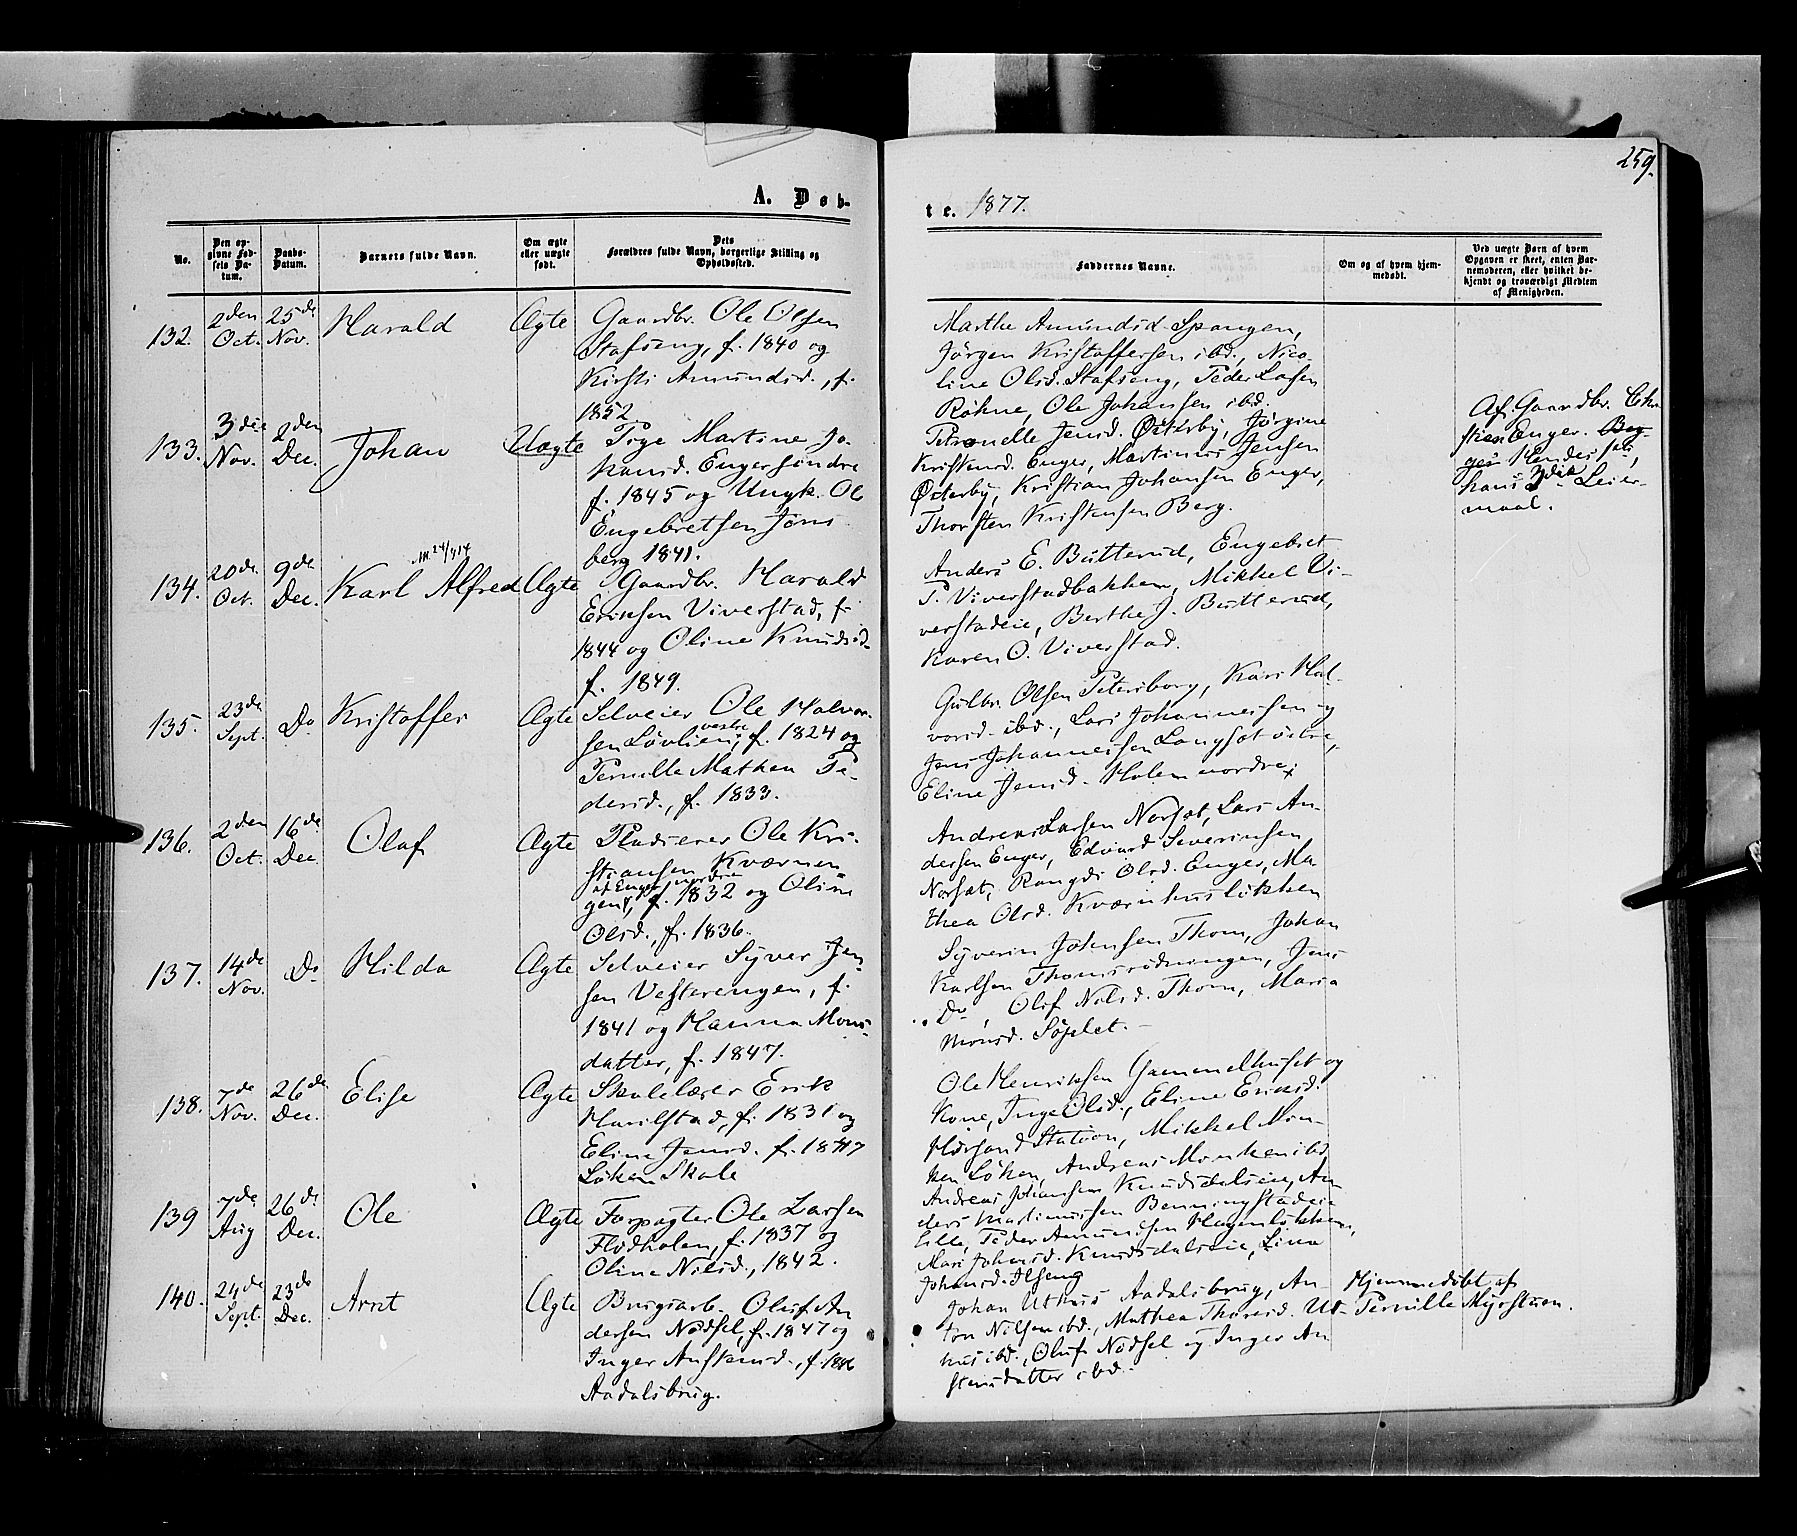 259.
A. Døb-
te. 1877.
No.
Den op-
givne Fød-
sels Da-
tum.
Daabs-
Datum.
Barnets fulde Navn.
Om ægte
eller uægte
født.
Dets
Forældres fulde Navn, borgerlige Stilling og
Opholdssted.
Faddernes Navne.
Om og af hvem hjem-
medøbt.
Ved uægte Børn af hvem
Opgaven er skeet, enten Bar-
nemoderen, eller hvilket be-
kjendt og troværdigt Medlem
af Menigheden.
132. 2den Oct. 25de Nov. Harald Ægte
Gaardbr. Ole Olsen
Stafseng, f. 1840 og
Kirsti Amundsd., f.
1852
Marthe Amundsd. Spangen,
Jörgen Kristoffersen ibd., Nico-
line Olsd. Stafseng, Peder Larsen
Röhne, Ole Johansen ibd.
133. 3die Nov. 2den Dec. Johan Uægte
Pige Martine Jo-
hansd. Enger söndre
f. 1845 og Ungk. Ole
Engebretsen Jöns
berg 1841.
Petronelle Jensd. Österby, Jörgine
Kristensd. Enger, Martinus Jensen
Österby, Kristian Johansen Enger,
Thorsten Kristensen Berg.
Af Gaardbr. Chri
sten Enger.
Hendes 1ste,
hans 3die Leier-
maal.
134. 20de Oct. 9de Dec. Karl Alfred Ægte
Gaardbr. Harald
Eriksen Viverstad, f.
1844 og Oline Knudsd.
f. 1849.
Anders E. Butterud, Engebret
P. Viverstadbakken, Mikkel Vi-
verstadeie, Berthe J. Butterud,
Karen O. Viverstad.
135. 23de Sept. Do Kristoffer Ægte
Selveier Ole Halvor-
sen Lövlien vestre, f. 1824 og
Pernille Mathea Pe-
dersd., f. 1833.
Gulbr. Olsen Petersborg, Kari Hal-
vorsd. ibd., Lars Johannessen og
Jens Johannessen Langset östre,
Eline Jensd. Holem nordre.
136. 2den Oct. 16de Dec. Olaf Ægte
Pladseier Ole Kri-
stiansen Kværnen
af Enger nordre
gen, f. 1832 og Oline
Olsd., f. 1836.
Andreas Larsen Norset, Lars An-
dersen Enger, Edvard Severinsen
Norset, Rangdi Olsd. Enger, Ma-
thea Olsd. Kværnhuslökken
137. 14de Nov. Do Hilda Ægte
Selveier Syver Jen-
sen Vesterengen, f.
1841 og Hanna Mons-
datter, f. 1847.
Syverin Johnsen Thom, Johan
Karlsen Thomsrödningen, Jens
Do, Olif Nilsd. Thom, Maria
Monsd. Söplet. -
138. 7de Nov. 26de Dec. Elise Ægte
Skolelærer Erik
Harilstad, f. 1831 og
Eline Jensd. f. 1847
Löken Skole
Ole Henriksen Gammelhuset og
Kone, Inge Olsd., Eline Eriksd.
Hörsand Station, Mikkel Mon-
ken Löken, Andreas Monken ibd.
139 7de Aug 26de Dec. Ole Ægte
Forpagter Ole Larsen
Flodholen, f. 1837 og
Oline Nilsd., 1842.
Andreas Johansen Knudsdalseie, An
ders Martinussen Benningstadeie
lille, Peder Amundsen Hagenlökken,
Mari Johnsd. Knudsdalseie, Lina
Johansd. Ilseng
140. 24de Sept. 23de Dec. Arnt Ægte
Brugsarb. Oluf An
dersen Nödsel, f. 1847 og
Inger Anstensd., f. 1846
Aadalsbrug.
Johan Uthus Aadalsbrug, An-
ton Nilsen ibd., Mathea Thoresd. Ut-
hus ibd., Oluf Nödsel og Inger An
stensdatter ibd.
Hjemmedöbt af
Pernille Myrstuen.